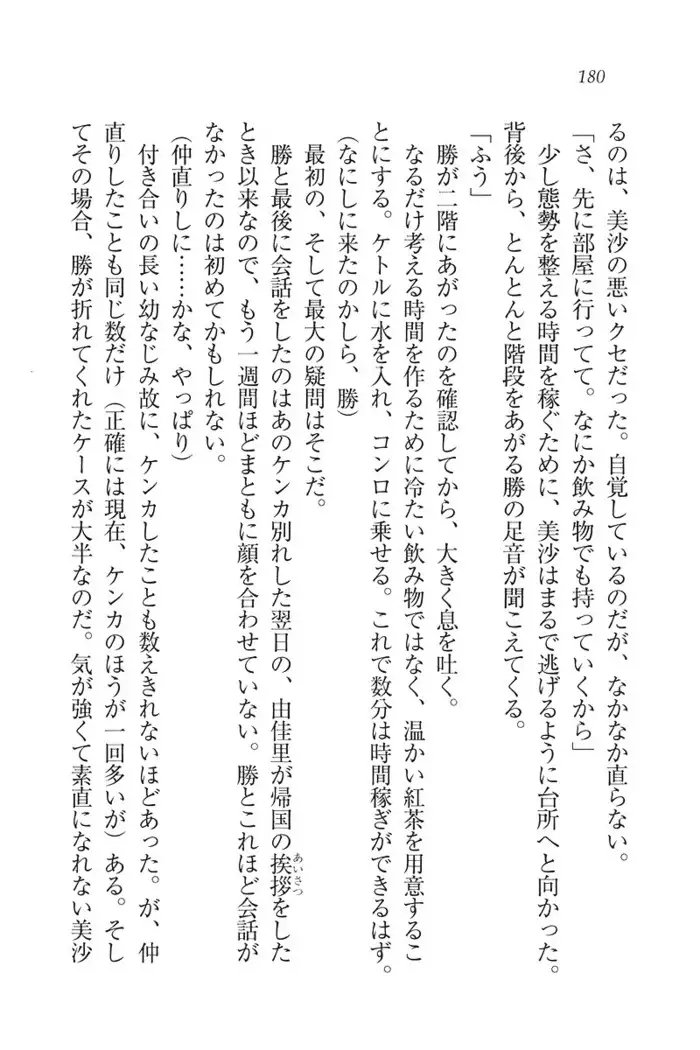 180
るのは、美沙の悪いクセだった。自覚しているのだが、なかなか直らない。
「さ、先に部屋に行ってて。なにか飲み物でも持っていくから」
少し態勢を整える時間を稼ぐために、美沙はまるで逃げるように台所へと向かった。
背後から、とんとんと階段をあがる勝の足音が聞こえてくる。
「ふう」
勝が二階にあがったのを確認してから、大きく息を吐く。
なるだけ考える時間を作るために冷たい飲み物ではなく、温かい紅茶を用意するこ
とにする。ケトルに水を入れ、コンロに乗せる。これで数分は時間稼ぎができるはず。
(なにしに来たのかしら、勝)
最初の、そして最大の疑問はそこだ。
勝と最後に会話をしたのはあのケンカ別れした翌日の、由佳里が帰国の挨拶をした
あいさつ
とき以来なので、もう一週間ほどまともに顔を合わせていない。勝とこれほど会話が
なかったのは初めてかもしれない。
(仲直りしに……かな、やっぱり)
付き合いの長い幼なじみ故に、ケンカしたことも数えきれないほどあった。が、仲
直りしたことも同じ数だけ(正確には現在、ケンカのほうが一回多いが)ある。そし
てその場合、勝が折れてくれたケースが大半なのだ。気が強くて素直になれない美沙